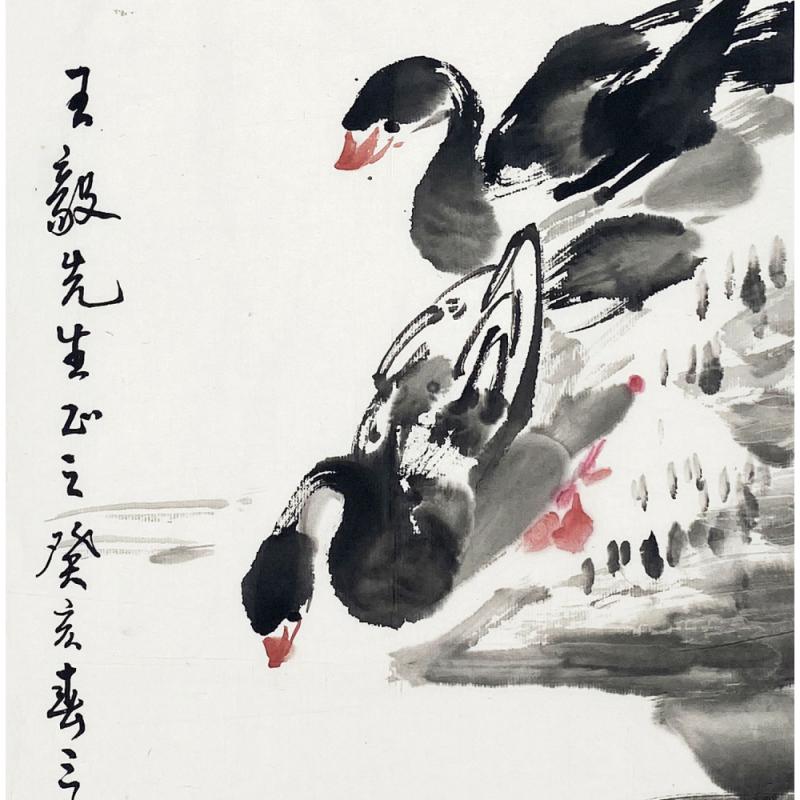 王毅先生正之癸亥春三